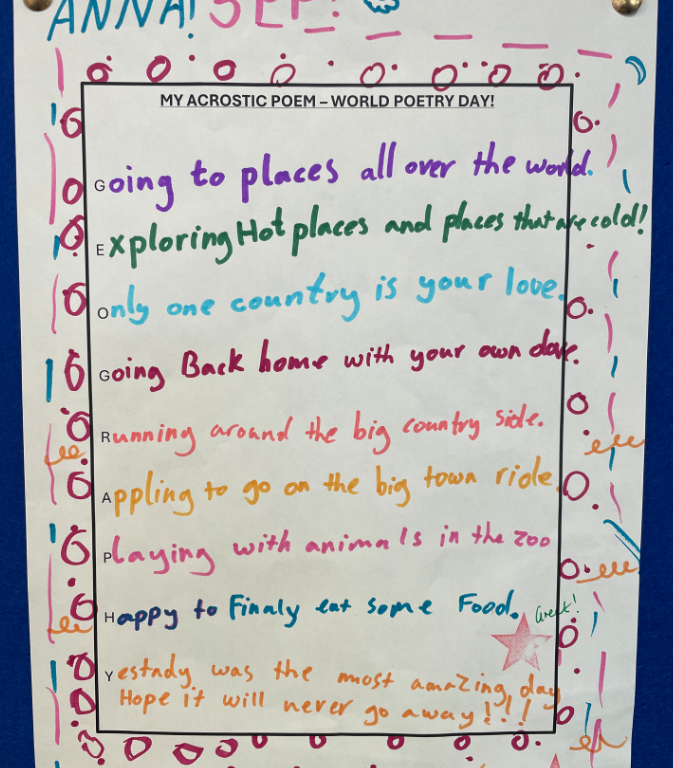 ANNA! SEP!
MY ACROSTIC POEM – WORLD POETRY DAY!
Going to places all over the world.
Exploring Hot places and places that are cold!
Only one country is your love.
Going Back home with your own dove.
Running around the big country side.
Appling to go on the big town ride.
Playing with animals in the zoo
Happy to Finaly eat some Food.
Great!
Yestady was the most amazing day
Hope it will never go away!!!